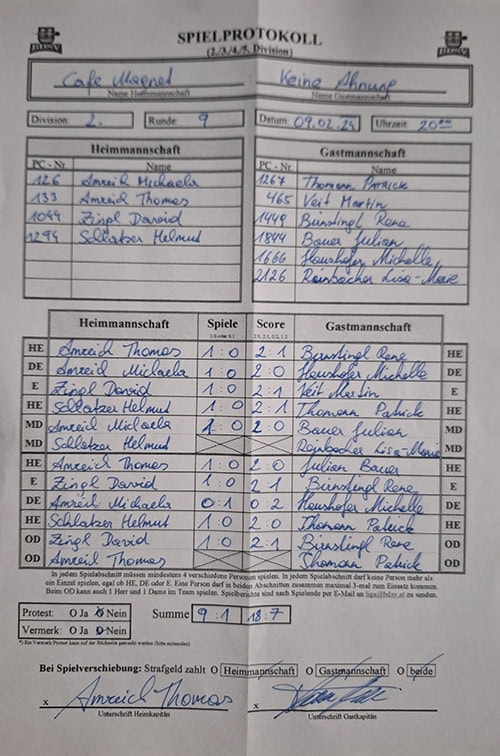 BDSV SPIELPROTOKOLL BDSV
(2./3./4./5. Division)
Cafe Magnet Keine Ahnung
Name Heimmannschaft Name Gastmannschaft
Division 2. Runde: 9 Datum: 09.02.24 Uhrzeit: 20⁰⁰
Heimmannschaft Gastmannschaft
PC - Nr. Name PC - Nr. Name
126 Amreich Michaela 1267 Thomann Patrick
133 Amreich Thomas 465 Veit Martin
1044 Zingl David 1449 Bünstingl Rene
1294 Schlatzer Helmut 1844 Bauer Julian
1666 Haushofer Michelle
2126 Rainbacher Lisa-Marie
Heimmannschaft Spiele Score Gastmannschaft
1:0 oder 0:1 2:0, 2:1, 0:2, 1:2
HE Amreich Thomas 1:0 2:1 Bünstingl Rene HE
DE Amreich Michaela 1:0 2:0 Haushofer Michelle DE
E Zingl David 1:0 2:1 Veit Martin E
HE Schlatzer Helmut 1:0 2:1 Thomann Patrick HE
MD Amreich Michaela 1:0 2:0 Bauer Julian MD
MD Schlatzer Helmut Rainbacher Lisa-Marie MD
HE Amreich Thomas 1:0 2:0 Julian Bauer HE
E Zingl David 1:0 2:1 Bünstingl Rene E
DE Amreich Michaela 0:1 0:2 Haushofer Michelle DE
HE Schlatzer Helmut 1:0 2:0 Thomann Patrick HE
OD Zingl David 1:0 2:1 Bünstingl Rene OD
OD Amreich Thomas Thomann Patrick OD
In jedem Spielabschnitt müssen mindestens 4 verschiedene Personen spielen. In jedem Spielabschnitt darf keine Person mehr als
ein Einzel spielen, egal ob HE, DE oder E. Eine Person darf in beiden Abschnitten zusammen maximal 3-mal zum Einsatz kommen.
Beim OD kann auch 1 Herr und 1 Dame im Team spielen. Spielberichte sind nach Spielende per E-Mail an liga@bdsv.at zu senden.
Protest: O Ja O Nein Summe 9:1 18:7
Vermerk: O Ja O Nein
*) Ein Vermerk Protest kann auf der Rückseite gemacht werden (bitte anmerken)
Bei Spielverschiebung: Strafgeld zahlt O Heimmannschaft O Gastmannschaft O beide
x Amreich Thomas x
Unterschrift Heimkapitän Unterschrift Gastkapitän